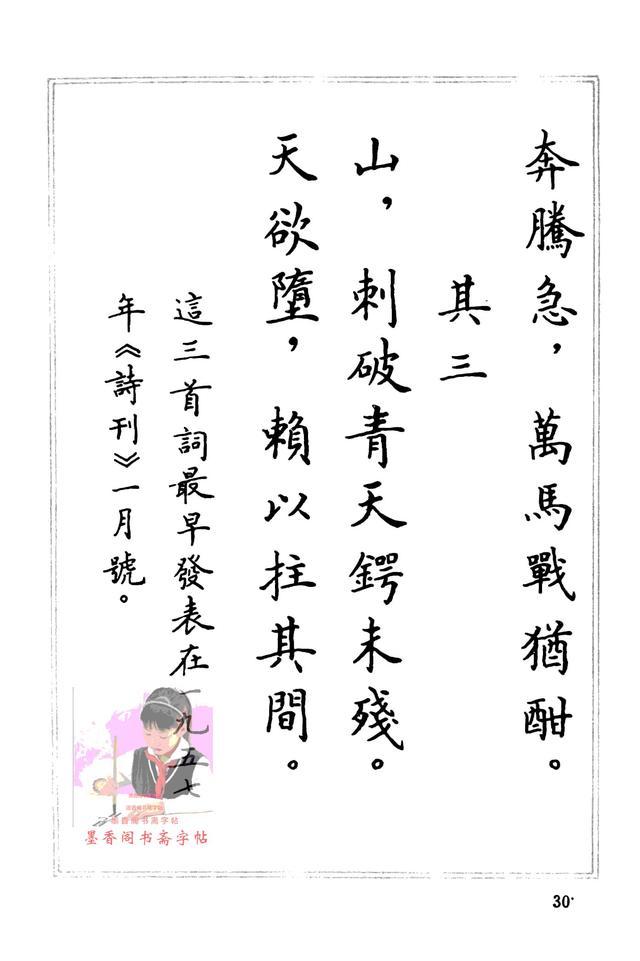 奔騰急，萬馬戰猶酣。
其三
山，刺破青天鍔未殘。
天欲墮，賴以拄其間。
這三首詞最早發表在一九五七
年《詩刊》一月號。
墨香阁书斋字帖
墨香阁书斋字帖
30